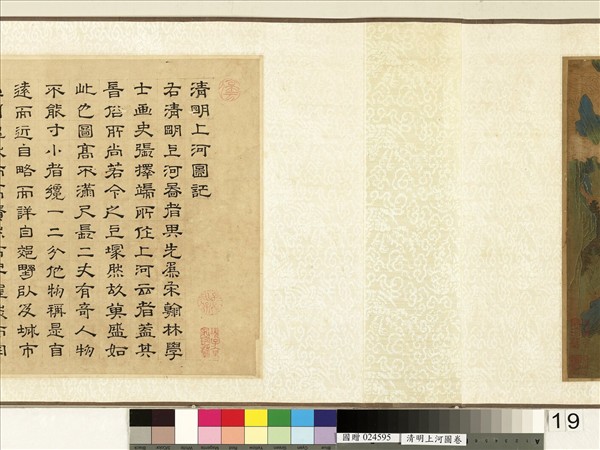 清明上河圖記
右清明上河圖者 先爲宋翰林學
士畫史張擇端所作上河云者蓋其
昔俗所尚若今之上塚然故其盛如
此也圖高不滿尺長二丈有奇人物
不能寸小者纔一二分他物稱是自
遠而近自略而詳自郊野以及城市
19
國贈 024595
清明上河圖卷